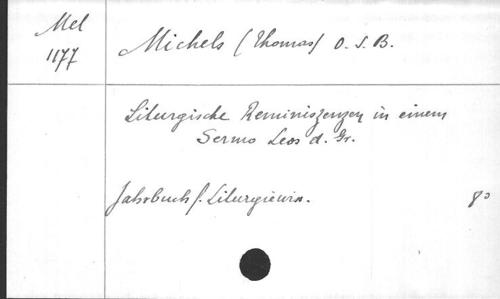 Mel
1177
Michels (Thomas) O. S. B.
Liturgische Reminiszenzen in einem
Sermo Leos d. Gr.
Jahrbuch f. Liturgiewiss.
8°